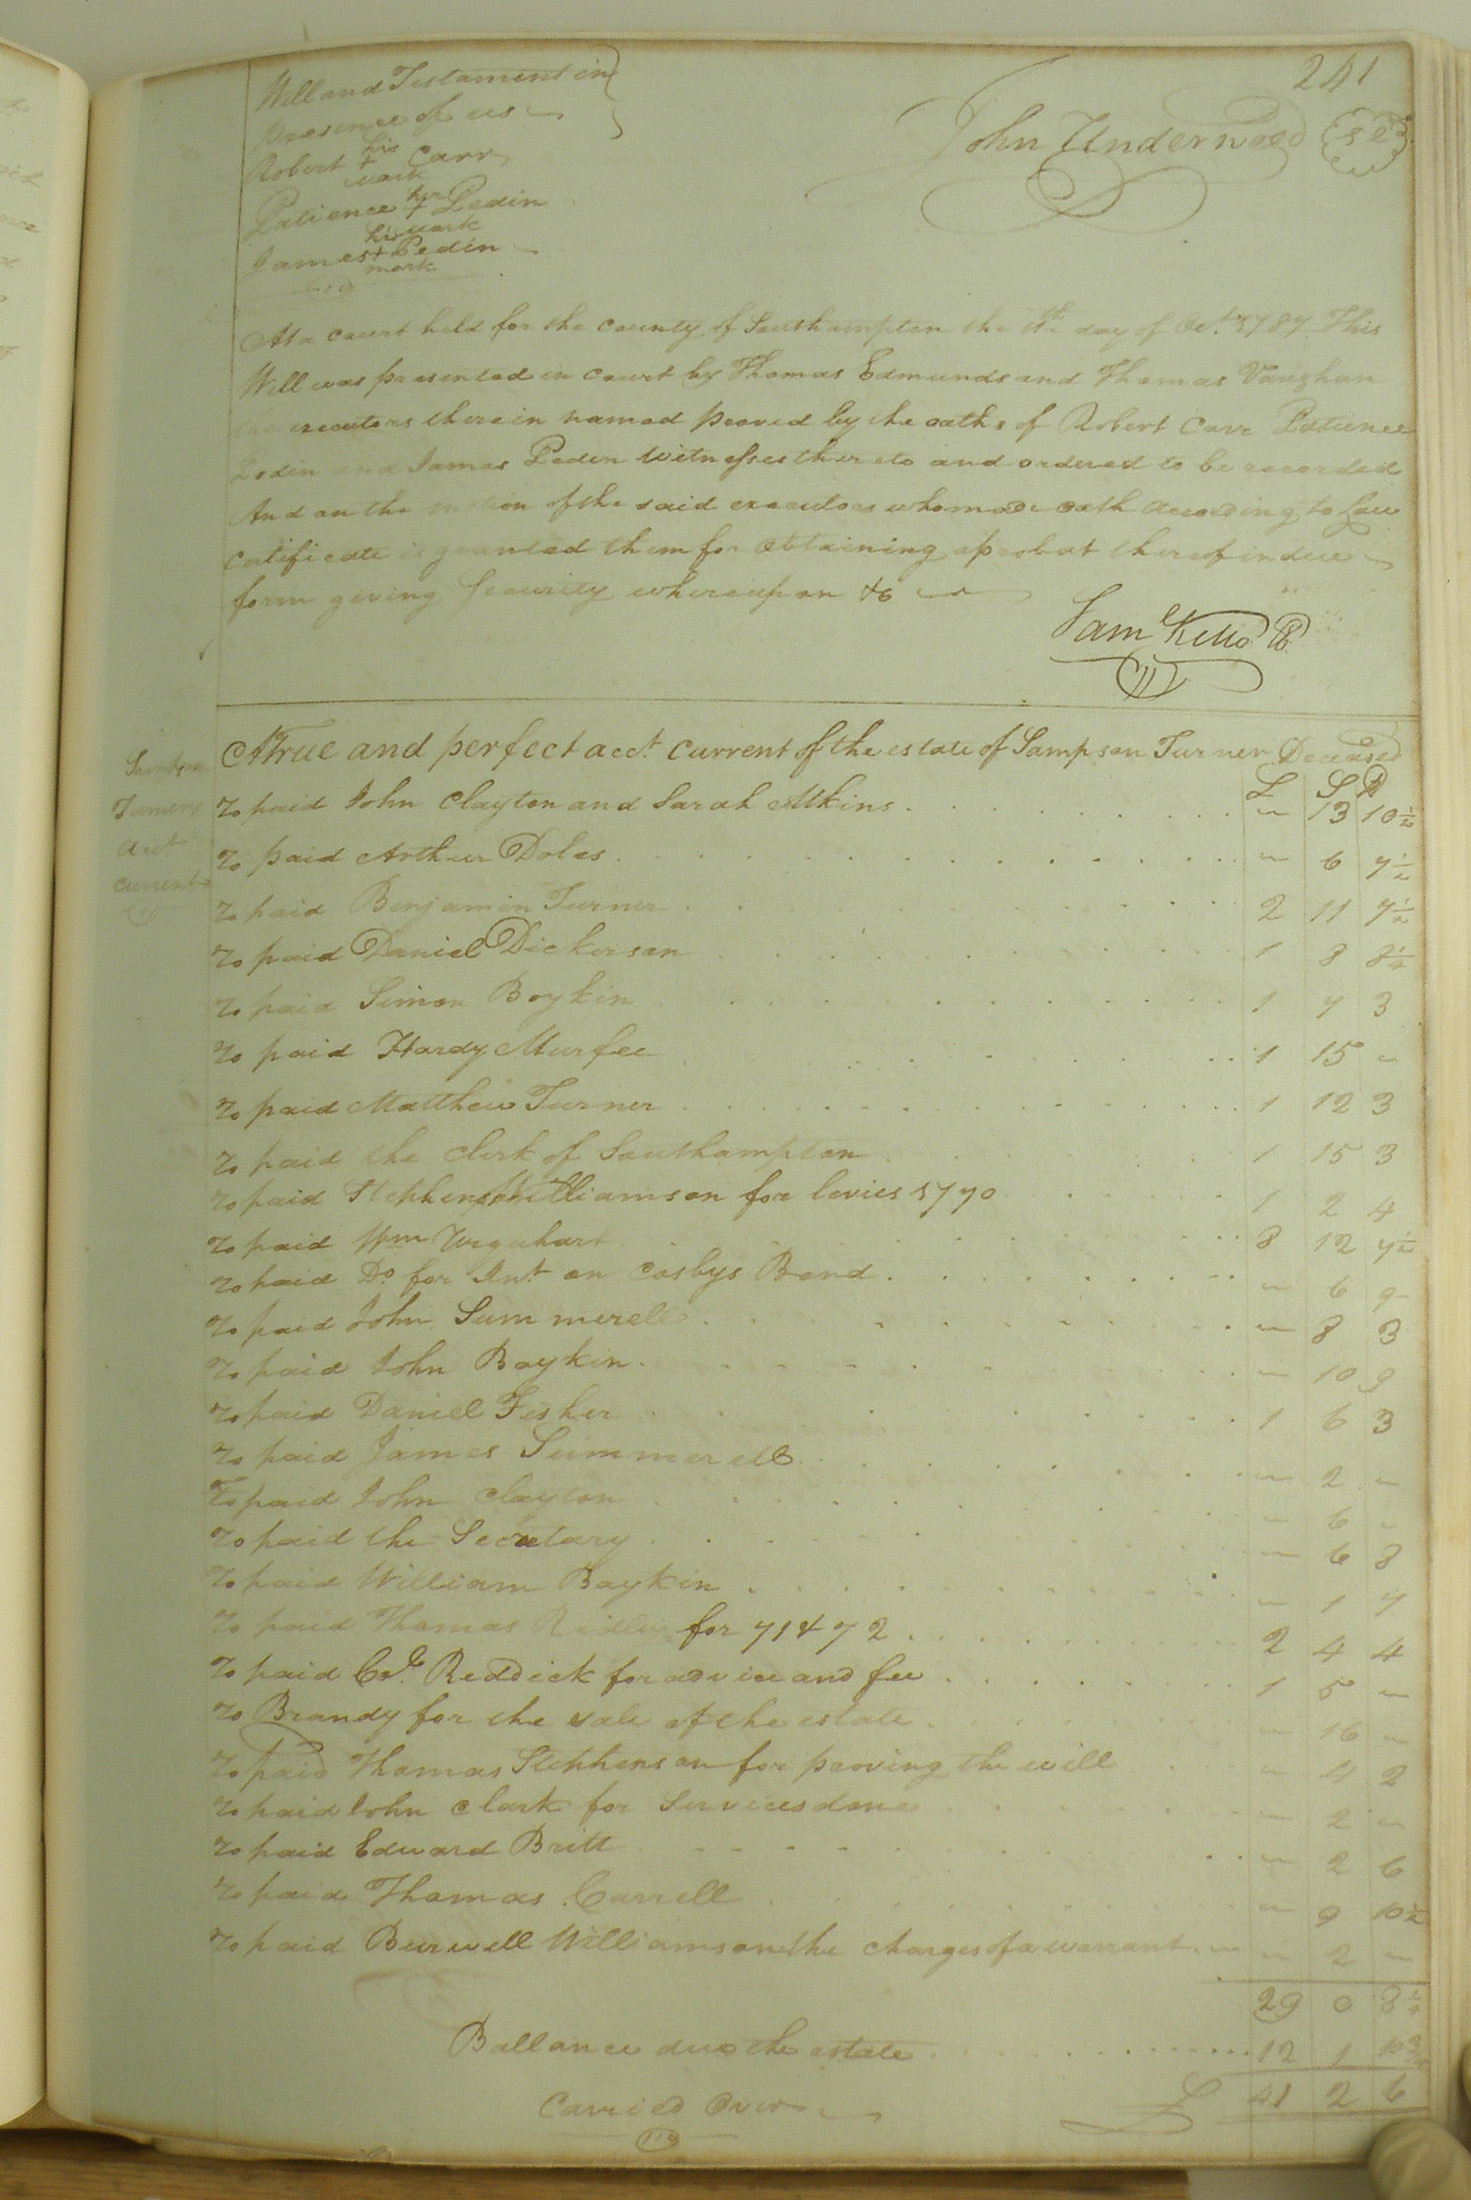 241
Will and Testament in
presence of us
Robert his + mark Carr
Patience her + mark Pedin
James his + mark Pedin
John Underwood
At a court held for the county of Southampton the 11th day of Oct. 1787. This
Will was presented in court by Thomas Edmunds and Thomas Vaughan
the executors therein named proved by the oaths of Robert Carr Patience
Pedin and James Peden witnesses thereto and ordered to be recorded
And on the motion of the said executors who made oath according to Law
certificate is granted them for obtaining a probat thereof in due
form giving Security whereupon &c
Sam Kello
Sampson
Turners
acct
current
A True and perfect acct. current of the estate of Sampson Turner Deceased
L S D
To paid John Clayton and Sarah Atkins . . . ~ 13 10½
To paid Arthur Doles . . . ~ 6 7½
To paid Benjamin Turner . . . 2 11 7½
To paid Daniel Dickerson . . . 1 8 8¼
To paid Simon Boykin . . . 1 7 3
To paid Hardy Murfee . . . 1 15 ~
To paid Matthew Turner . . . 1 12 3
To paid the Clerk of Southampton . . . 1 15 3
To paid Stephen Williamson for levies 1770 . . . 1 2 4
To paid Wm Urquhart . . . 8 12 7½
To paid Do for Int on Cosbys Bond . . . ~ 6 9
To paid John Summerell . . . ~ 8 3
To paid John Boykin . . . ~ 10 9
To paid Daniel Fisher . . . 1 6 3
To paid James Summerell . . . ~ 2 ~
To paid John Clayton . . . ~ 6 ~
To paid the Secretary . . . ~ 6 8
To paid William Boykin . . . ~ 1 7
To paid Thomas Ridley for 71 & 72 . . . 2 4 4
To paid Col. Reddick for advice and fee . . . 1 5 ~
To Brandy for the sale of the estate . . . ~ 16 ~
To paid Thomas Stephenson for proving the will . . . ~ 4 2
To paid John Clark for Services done . . . ~ 2 ~
To paid Edward Britt . . . ~ 2 6
To paid Thomas Carrell . . . ~ 9 10½
To paid Burwell Williamson the charges of a warrant ~ ~ 2 ~
29 0 8¼
Ballance due the estate . . . 12 1 10¾
Carried Over £ 41 2 6